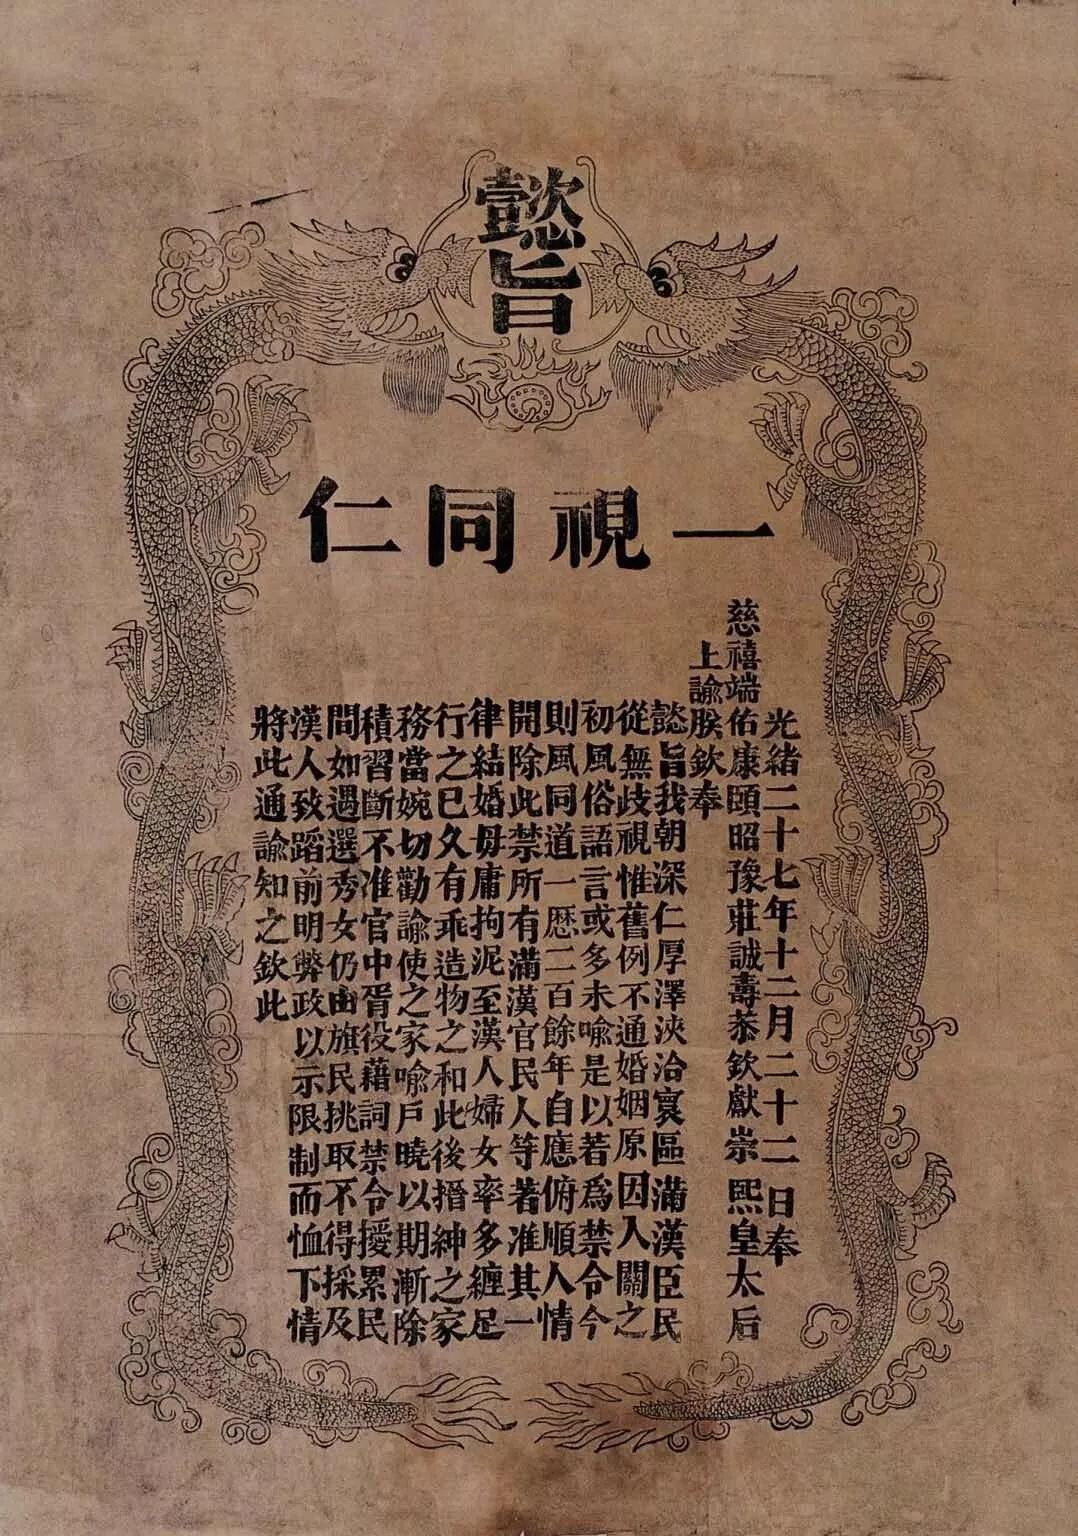 懿旨
一視同仁
光緒二十七年十二月二十二日奉
慈禧端佑康頤昭豫莊誠壽恭欽獻崇熙皇太后
上諭朕欽奉
懿旨我朝深仁厚澤浹洽寰區滿漢臣民
從無歧視惟舊例不通婚姻原因入關之
初風俗語言或多未喩是以若爲禁令今
則風同道一歷二百餘年自應俯順人情
開除此禁所有滿漢官民人等著准其一
律結婚毋庸拘泥至漢人婦女率多纏足
行之已久有乖造物之和此後搢紳之家
務當婉切勸諭使之家喩戶曉以期漸除
積習斷不准官中胥役藉詞禁令擾累民
間如遇選秀女仍由旗民挑取不得採及
漢人致蹈前明弊政以示限制而恤下情
將此通諭知之欽此